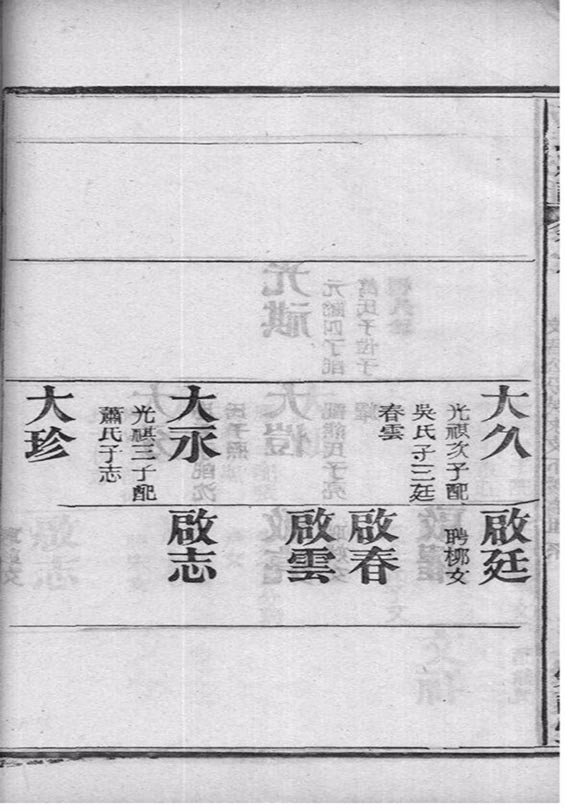 大久
光祺次子配
吳氏子三廷
春雲
大永
光祺三子配
蕭氏子志
大珍
啟廷
聘栁女
啟春
啟雲
啟志